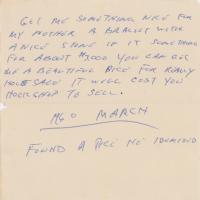 GET ME SOMETHING NICE FOR
MY MOTHER A BRACLET WITH
A NICE STONE IN IT SOMETHING
FOR ABOUT YOU CAN GET
ME A BEAUTIFUL PICE FOR REALLY
IT WILL COST YOU
TO SELL.
MARCH
FOUND A PICE